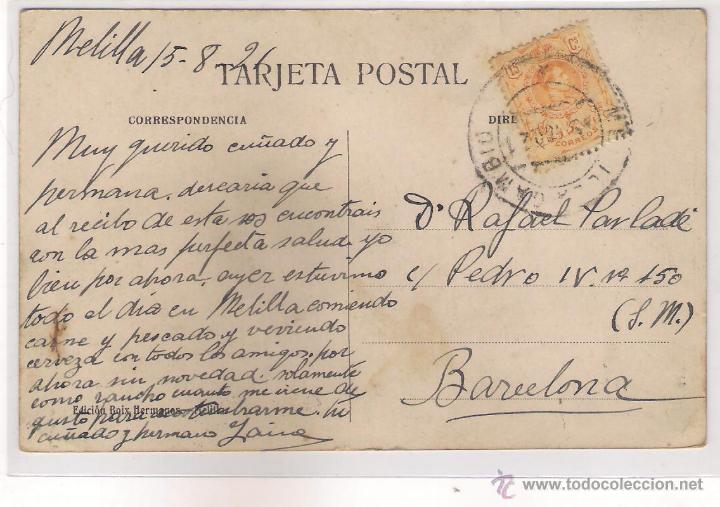 Melilla 15-8-21
TARJETA POSTAL
CORRESPONDENCIA
DIRE
Muy querido cuñado y
hermana, desearia que
al recibo de esta os encontrais
con la mas perfecta salud yo
bien por ahora, ayer estuvimo
todo el dia en Melilla comiendo
carne y pescado y veviendo
cerveza con todos los amigos, por
ahora sin novedad. solamente
como rancho cuanto me viene de
gusto para
cuñado y hermano
Edición Boix Hermanos. Melilla
CORREOS
CAMBIO
D. Rafael Parladé
c/ Pedro IV. nº 150
(S. M.)
Barcelona
todocoleccion
www.todocoleccion.net